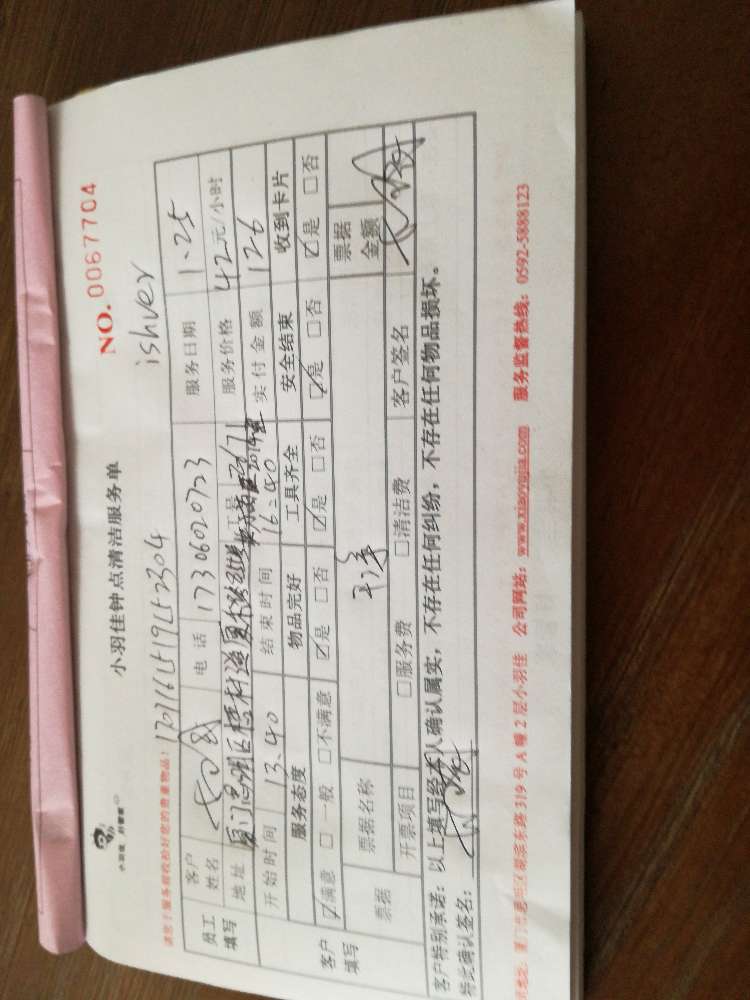 小羽佳 别管家
小羽佳钟点清洁服务单
NO. 0067704
请您于服务前收拾好您的贵重物品!
ishver
员工填写
客户姓名
电话 17306020723
服务日期 1.25
地址
工号
服务价格 42元/小时
开始时间 13.40
结束时间 16:40
实付金额 126
客户填写
服务态度
物品完好
工具齐全
安全结束
收到卡片
☑满意 □一般 □不满意
☑是 □否
☑是 □否
☑是 □否
☑是 □否
票据
票据名称
票据金额
开票项目
□服务费 □清洁费
客户签名
客户特别承诺:以上填写经本人确认属实,不存在任何纠纷,不存在任何物品损坏。
特此确认签名:
厦门市思明区湖滨东路 319 号 A 幢 2 层小羽佳 公司网站:www.xiaoyujia.com 服务监督热线:0592-5888123